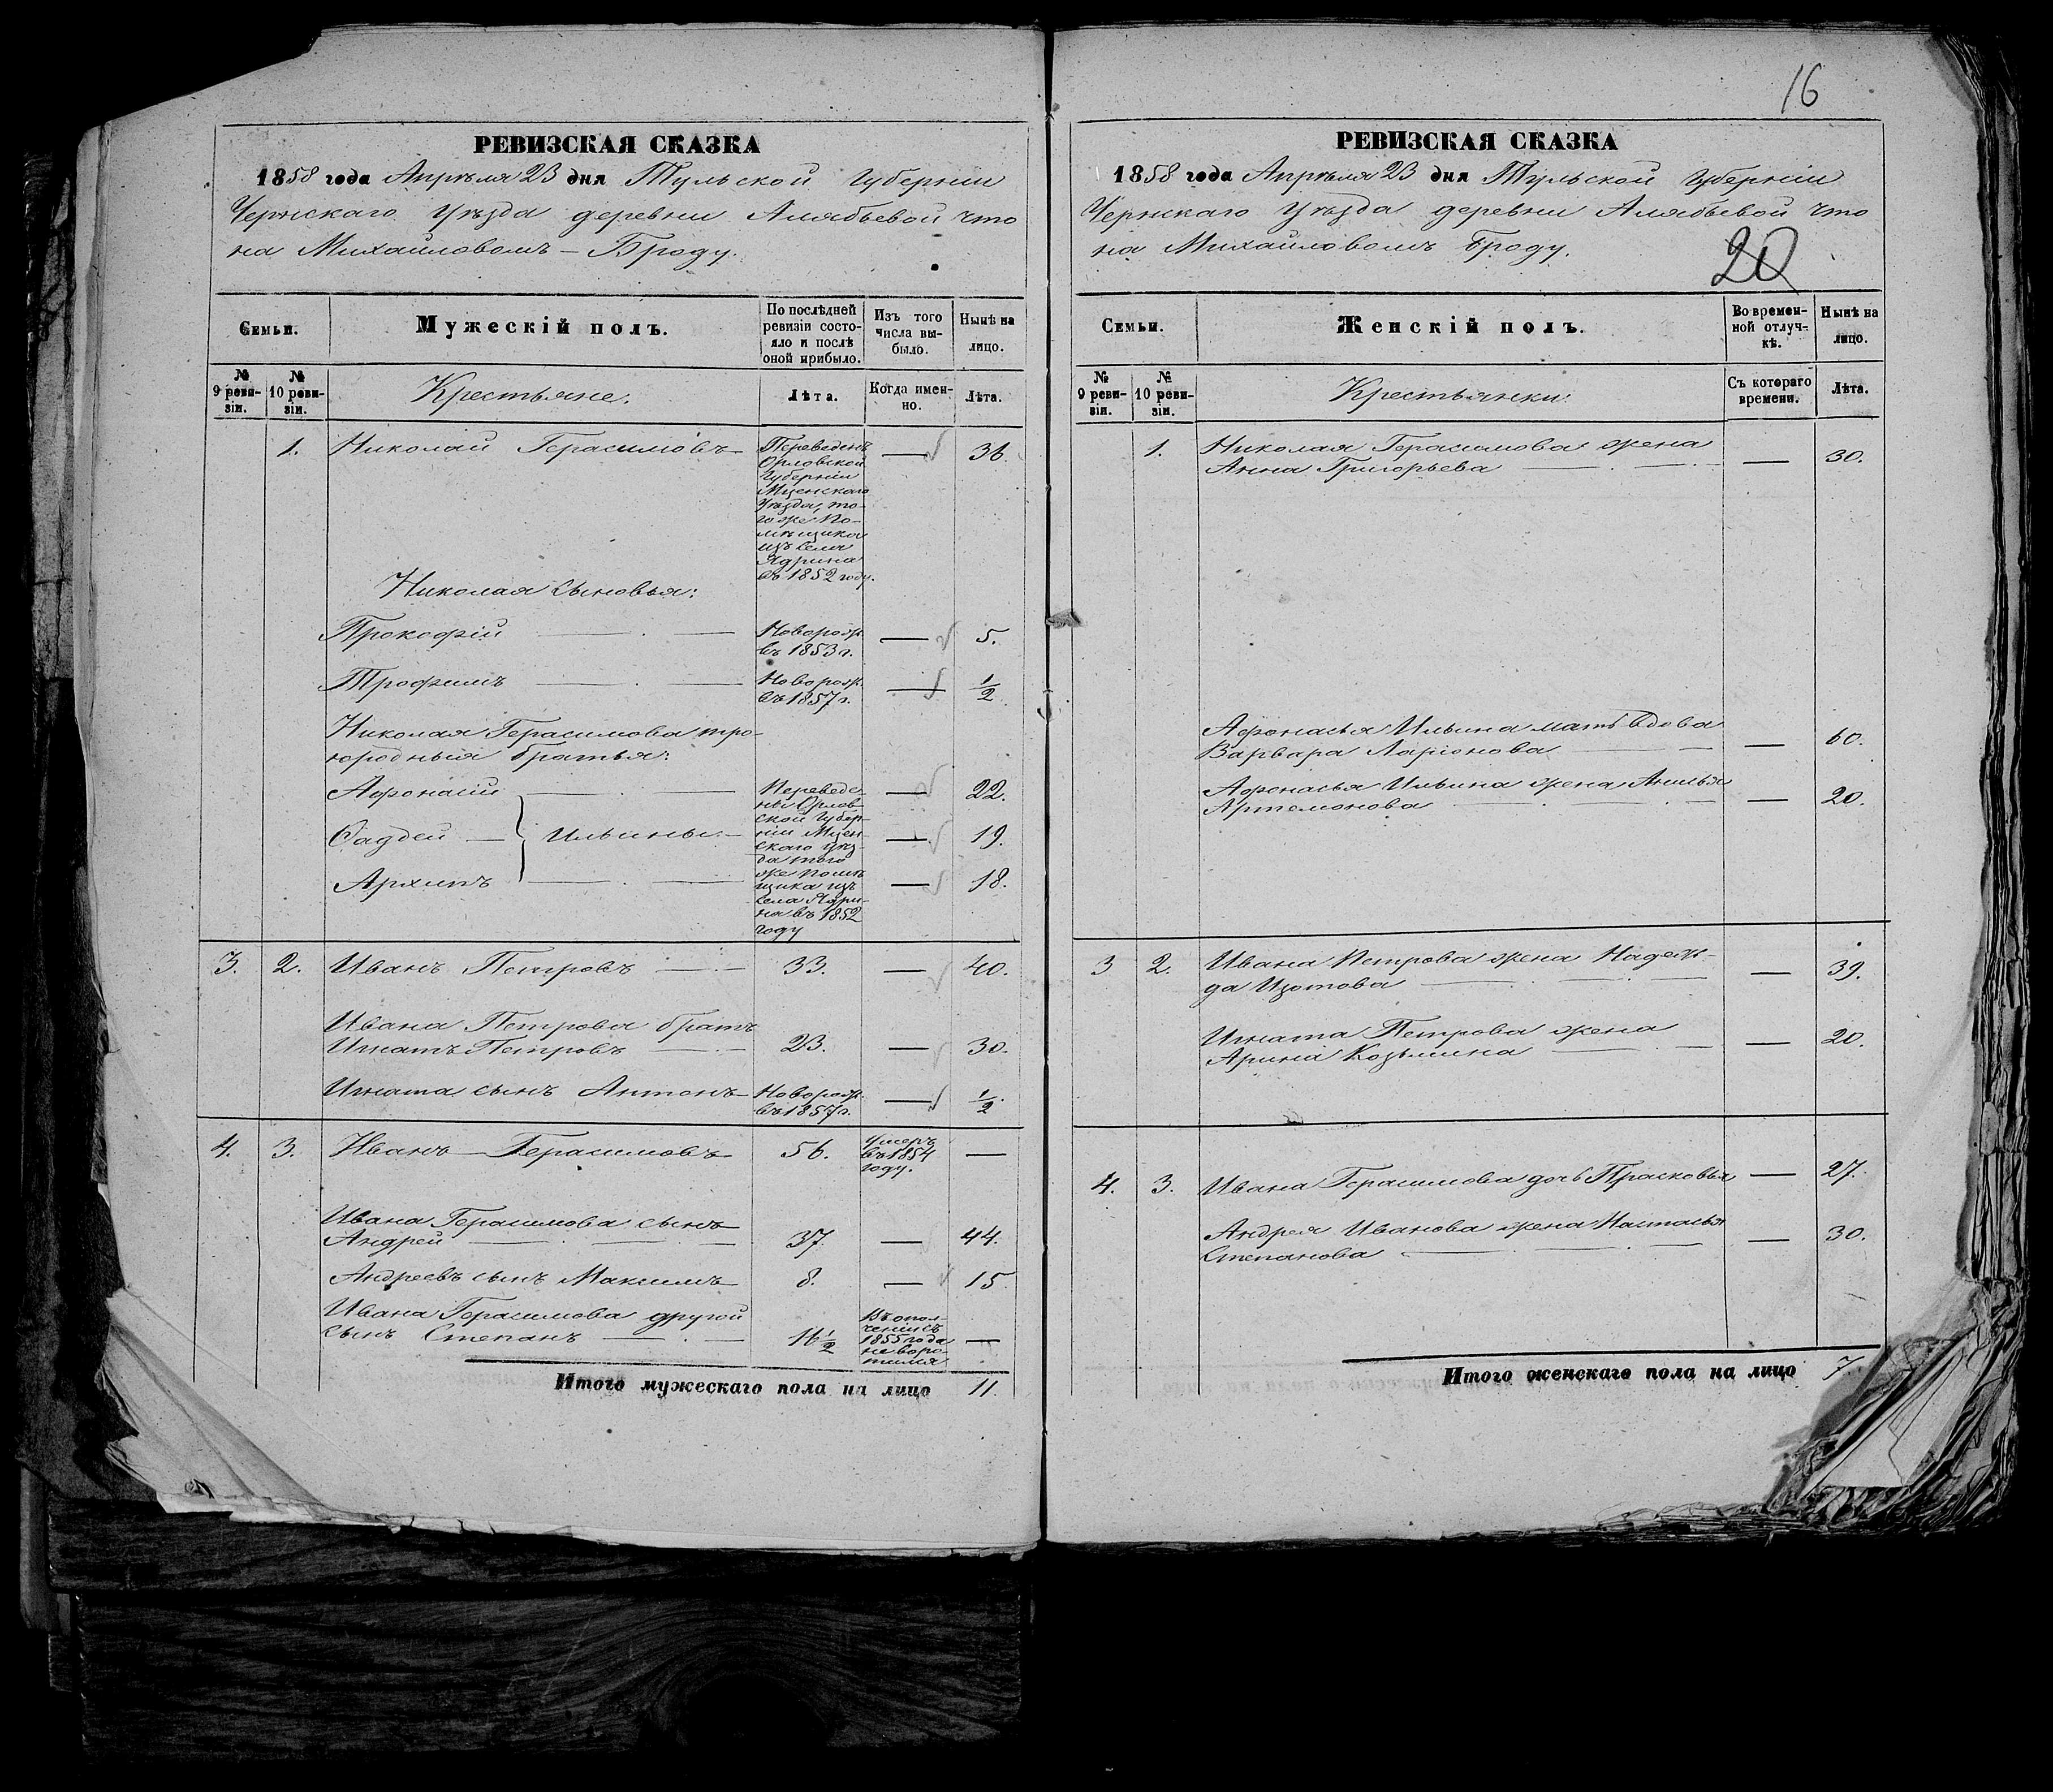 РЕВИЗСКАЯ СКАЗКА
1858 года Апрѣля 23 дня Тульской Губерніи
Чернскаго Уѣзда деревни Алябьевой что
на Михайловомъ – Броду.
Семьи.
Мужескій полъ.
По послѣдней
ревизіи состо-
яло и послѣ
оной прибыло.
Изъ того
числа вы-
было.
Нынѣ на
лицо.
№
9 реви-
зіи.
№
10 реви-
зіи.
Крестьяне.
Лѣта.
Когда имен-
но.
Лѣта.
1. Николай Герасимовъ — 36.
Переведенъ
Орловской
Губерніи
Мценскаго
Уѣзда, то-
го же По-
мѣщика
изъ села
Ядрина
въ 1852 году.
Николая сыновья:
Прокофій Новорожд. — 5.
въ 1853 г.
Трофимъ Новорожд. — 1/2
въ 1857 г.
Николая Герасимова тро-
юродныя братья:
Афонасій — 22.
Фадѣй — Ильины — 19.
Архипъ — 18.
Переведе-
ны Орлов-
ской Губер-
ніи Мцен-
скаго уѣз-
да того
же помѣ
щика изъ
села Ядри-
на въ 1852
году
3. 2. Иванъ Петровъ 33. — 40.
Ивана Петрова братъ
Игнатъ Петровъ 23. — 30.
Игната сынъ Антонъ Новорожд. — 1/2
въ 1857 г.
4. 3. Иванъ Герасимовъ 56. Умеръ —
въ 1854
году.
Ивана Герасимова сынъ
Андрей 37. — 44.
Андреевъ сынъ Максимъ 8. — 15
Ивана Герасимова другой
сынъ Степанъ 16 1/2 —
Въ опол-
ченіи съ
1855 года
не воро-
тился
Итого мужескаго пола на лицо 11.
16
РЕВИЗСКАЯ СКАЗКА
1858 года Апрѣля 23 дня Тульской Губерніи
Чернскаго Уѣзда деревни Алябьевой что
на Михайловомъ Броду.
20
Семьи.
Женскій полъ.
Во времен-
ной отлуч-
кѣ.
Нынѣ на
лицо.
№
9 реви-
зіи.
№
10 реви-
зіи.
Крестьянки:
Съ котораго
времени.
Лѣта.
1. Николая Герасимова жена
Анна Григорьева — 30.
Афонасья Ильина мать вдова
Варвара Ларіонова — 60.
Афонасья Ильина жена
Артемонова — 20.
3 2. Ивана Петрова жена Надеж-
да Изотова — 39.
Игната Петрова жена
Арина Козьмина — 20.
4. 3. Ивана Герасимова дочь Прасковья — 27.
Андрея Иванова жена Настасья
Степанова — 30.
Итого женскаго пола на лицо 7.